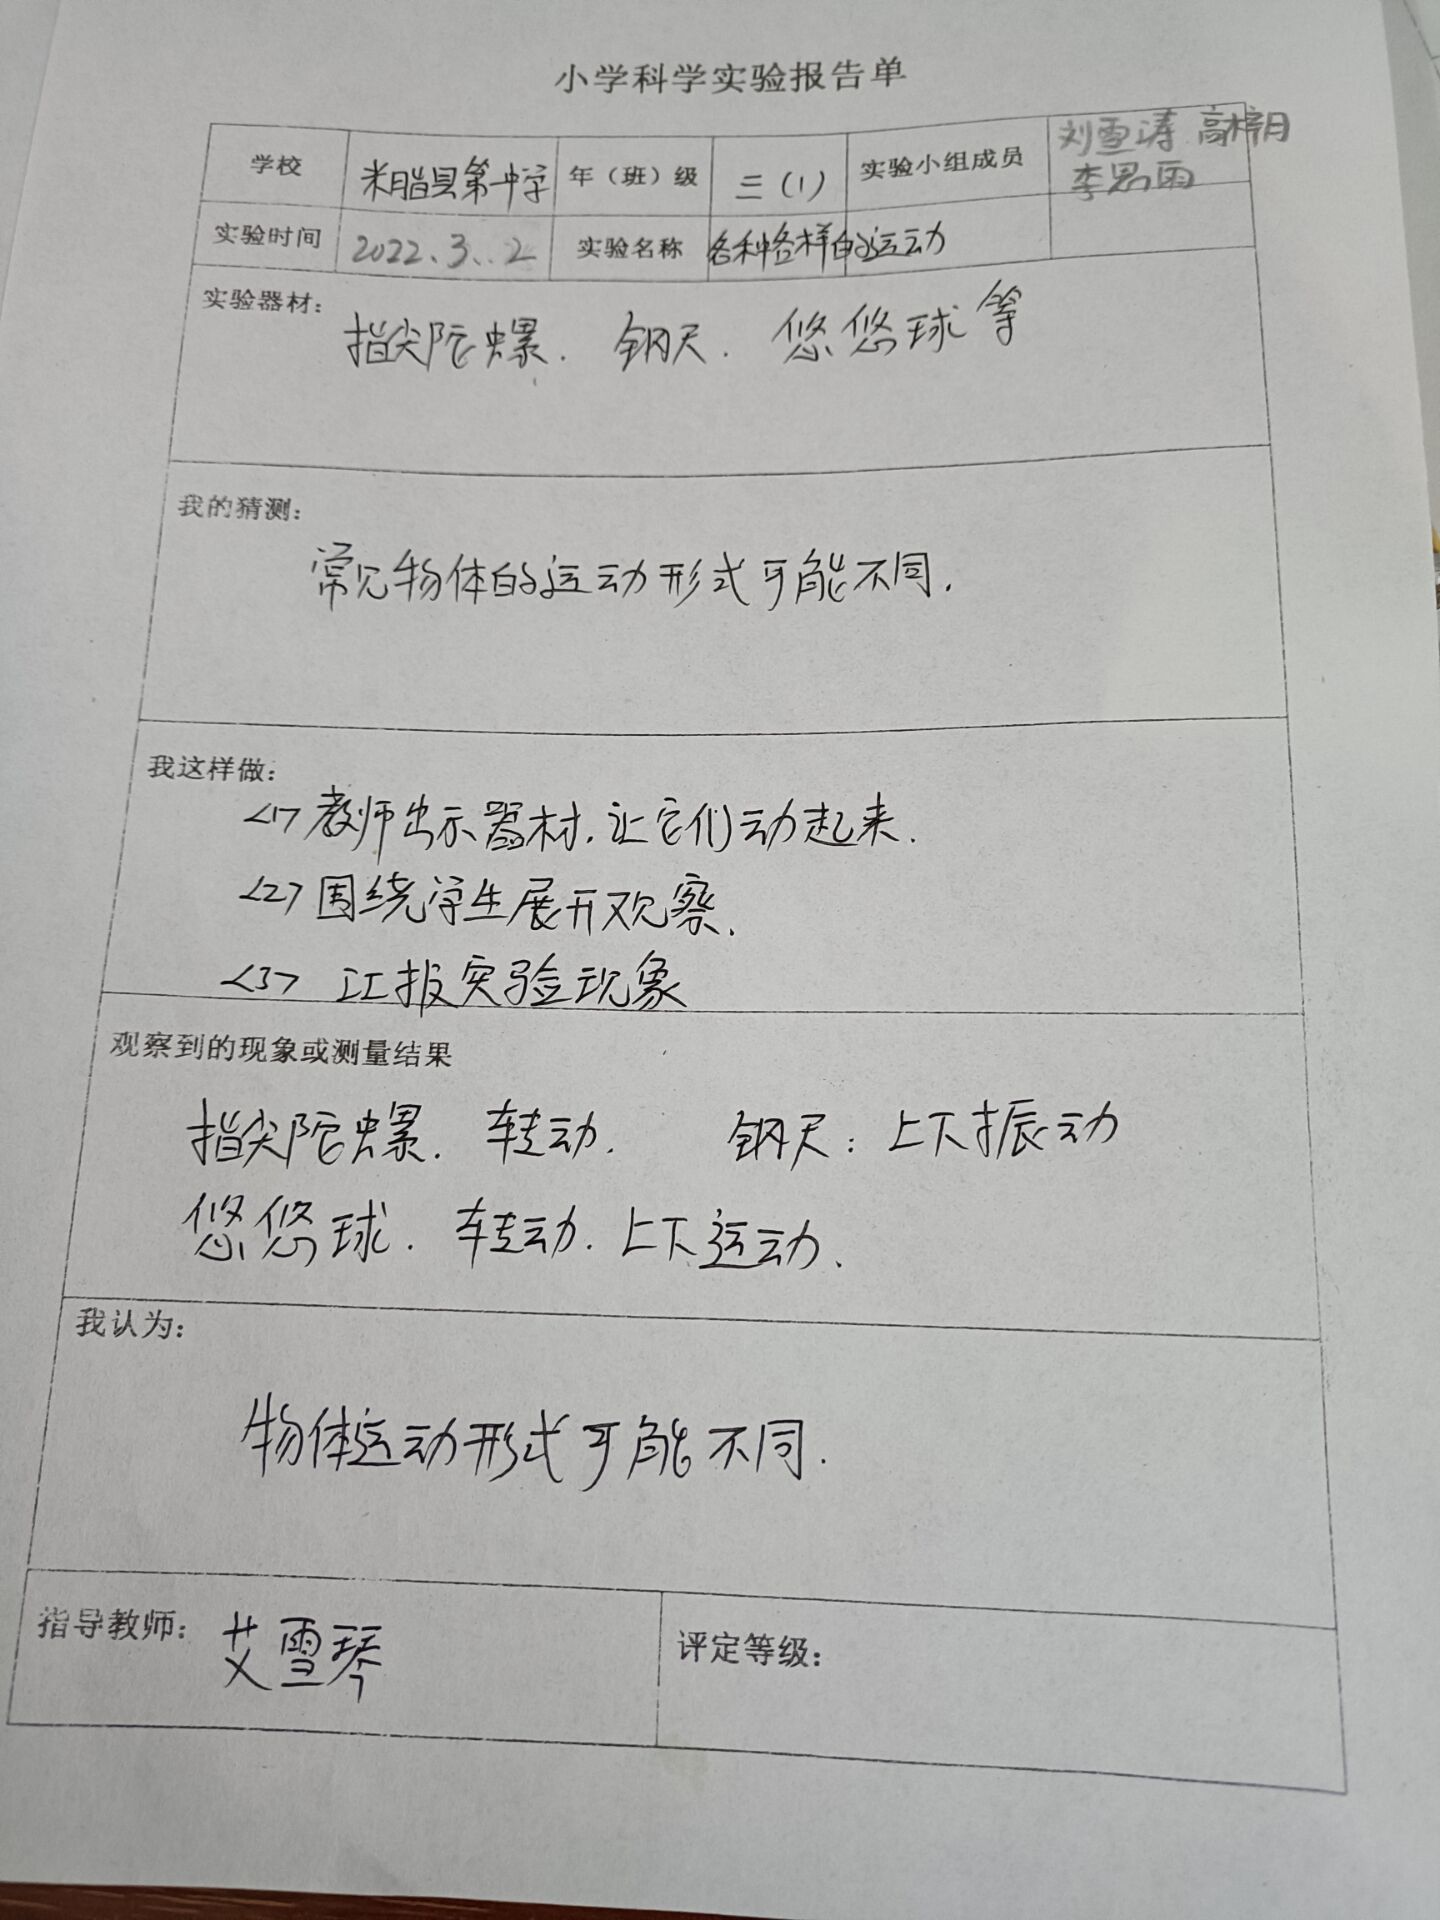 小学科学实验报告单
学校 米脂县第一中学 年（班）级 三（1） 实验小组成员 刘雪涛 高梓月
李思雨
实验时间 2022.3..2 实验名称 各种各样的运动
实验器材：
指尖陀螺. 钢尺. 悠悠球等
我的猜测：
常见物体的运动形式可能不同.
我这样做：
<1>教师出示器材.让它们动起来.
<2>围绕学生展开观察.
<3> 汇报实验现象
观察到的现象或测量结果
指尖陀螺. 转动. 钢尺：上下振动
悠悠球. 转动. 上下运动.
我认为：
物体运动形式可能不同.
指导教师： 艾雪琴 评定等级：